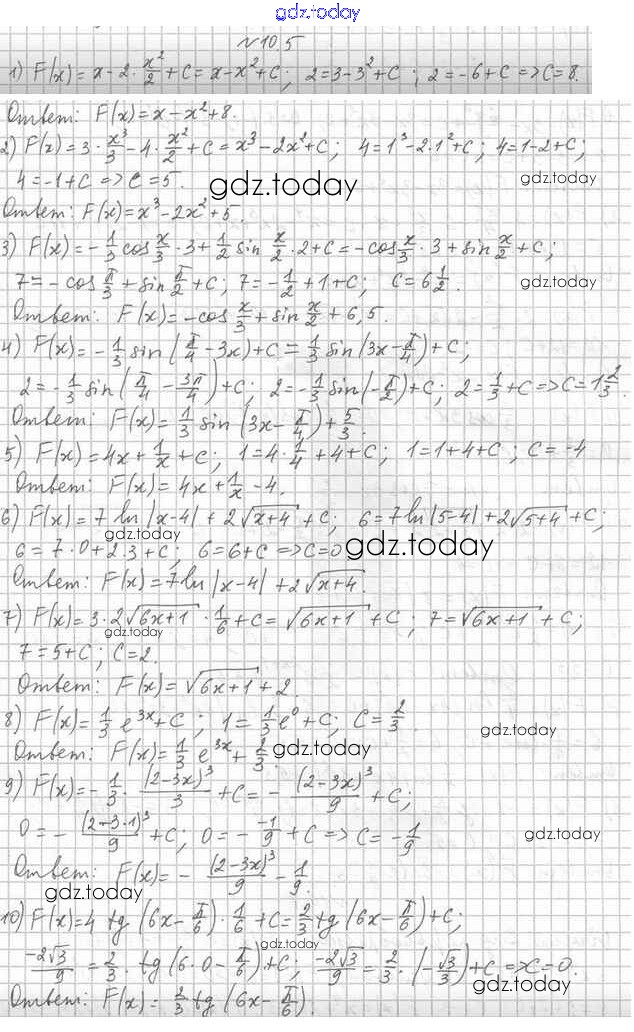 gdz.today
№10.5
1) F(x)=x-2·x²/2+C=x-x²+C; 2=3-3²+C; 2=-6+C=>C=8.
Ответ: F(x)=x-x²+8.
2) F(x)=3·x³/3-4·x²/2+C=x³-2x²+C; 4=1³-2·1²+C; 4=1-2+C;
4=-1+C=>C=5.
gdz.today
Ответ: F(x)=x³-2x²+5.
gdz.today
3) F(x)=-1/3 cos x/3·3+1/2 sin x/2·2+C=-cos x/3·3+sin x/2+C;
7=-cos π/3+sin π/2+C; 7=-1/2+1+C; C=6 1/2.
gdz.today
gdz.today
Ответ: F(x)=-cos x/3+sin x/2+6,5.
4) F(x)=-1/3 sin(π/4-3x)+C=1/3 sin(3x-π/4)+C;
2=-1/3 sin(π/4-3π/4)+C; 2=-1/3 sin(-π/2)+C; 2=1/3+C=>C=1 2/3.
Ответ: F(x)=1/3 sin(3x-π/4)+5/3.
5) F(x)=4x+1/x+C; 1=4·1/4+4+C; 1=1+4+C; C=-4
Ответ: F(x)=4x+1/x-4.
6) F(x)=7ln|x-4|+2√x+4+C; 6=7ln|5-4|+2√5+4+C;
6=7·0+2·3+C; 6=6+C=>C=0
gdz.today
Ответ: F(x)=7ln|x-4|+2√x+4.
7) F(x)=3·2√6x+1·1/6+C=√6x+1+C; 7=√6x+1+C;
gdz.today
7=5+C; C=2.
gdz.today
Ответ: F(x)=√6x+1+2.
8) F(x)=1/3 e³ˣ+C; 1=1/3 e⁰+C; C=2/3.
gdz.today
Ответ: F(x)=1/3 e³ˣ+2/3.
gdz.today
9) F(x)=-1/3·(2-3x)³/3+C=-(2-3x)³/9+C;
0=-(2-3·1)³/9+C; 0=--1/9+C=>C=-1/9
gdz.today
Ответ: F(x)=-(2-3x)³/9-1/9.
gdz.today
10) F(x)=4tg(6x-π/6)·1/6+C=2/3 tg(6x-π/6)+C;
gdz.today
-2√3/9=2/3·tg(6·0-π/6)+C; -2√3/9=2/3·(-√3/3)+C=>C=0.
gdz.today
Ответ: F(x)=2/3 tg(6x-π/6).